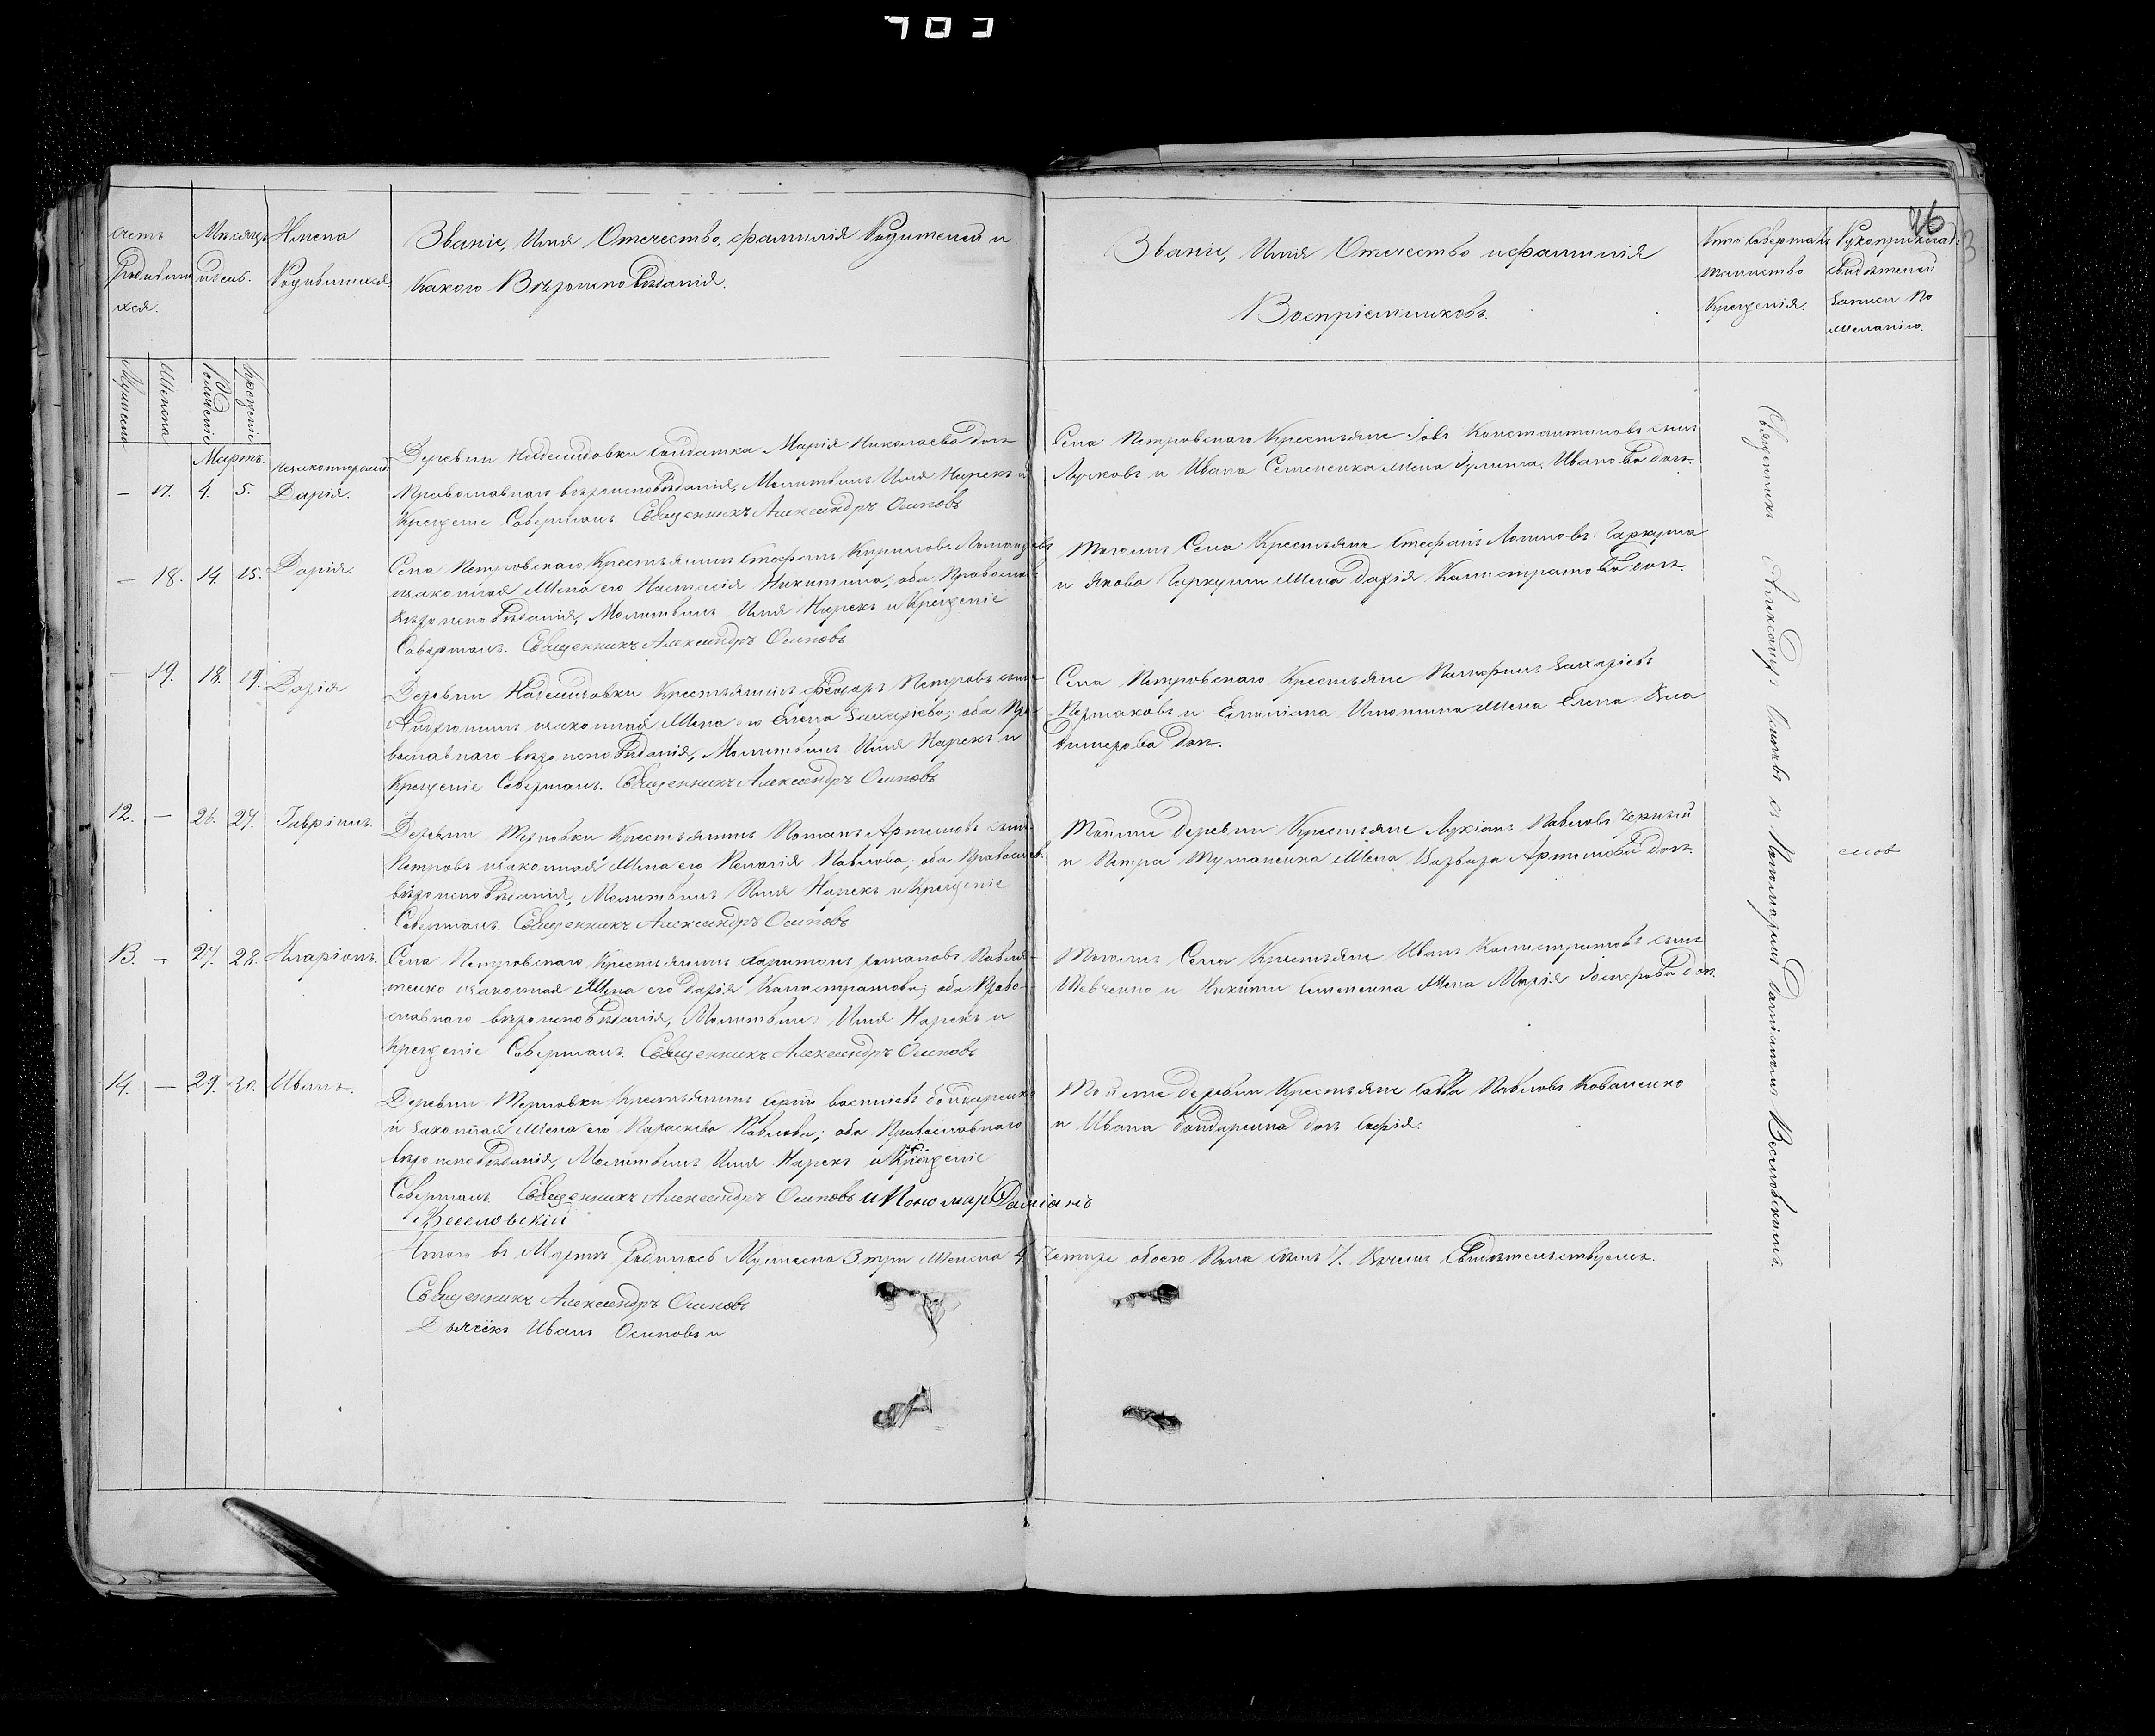 26
Счетъ
Родивши
хся.
Мѣсяцъ
и день.
Имена
Родившихся.
Званіе, Имя Отечество, фамилія Родителей и
Какого Вѣроисповѣданія.
Званіе, Имя Отечество и фамилія
Воспріемниковъ.
Кто Совершалъ
таинство
Крещенія.
Рукоприклад:
Свидѣтелей
Записи по
Желанію.
Мужеска
Женска
Рожденіе
Крещеніе
Мартъ.
— 17. 4. 5.
Незаконнорожд
Дарія.
Деревни Надеждовки Солдатка Марія Николаева дочь
Православнаго вѣроисповѣданія, Молитвилъ Имя Нарекъ и
Крещеніе Совершалъ. Священникъ Александръ Осиповъ
Села Петровскаго Крестьяне Іовъ Константиновъ сынъ
и Ивана Семененка жена Іулита Иванова дочь.
— 18. 14 15. Дарія.
Села Петровскаго Крестьянинъ Стефанъ Кириловъ
и законная Жена его Настасія Никитина, оба Православ
вѣроисповѣданія, Молитвилъ Имя Нарекъ и Крещеніе
Совершалъ. Священникъ Александръ Осиповъ
Тогожъ Села Крестьяне Стефанъ Логиновъ Гаркуша
и Якова Гаркуши Жена Дарія Калистратова дочь.
— 19. 18. 19. Дарія
Деревни Надеждовки Крестьянинъ Феодоръ Петровъ сынъ
и законная Жена его Елена Захаріева, оба Пра
вославнаго вѣроисповѣданія, Молитвилъ Имя Нарекъ и
Крещеніе Совершалъ. Священникъ Александръ Осиповъ
Села Петровскаго Крестьяне Памфилъ Захаріевъ
и Емиліана Жена Елена
дочь.
12. — 26. 27. Гавріилъ.
Деревни Терновки Крестьянинъ Потапъ Артемовъ сынъ
Петровъ и законная Жена его Пелагія Павлова, оба Православ.
вѣроисповѣданія, Молитвилъ Имя Нарекъ и Крещеніе
Совершалъ. Священникъ Александръ Осиповъ
Тойже Деревни Крестьяне Лукіанъ Павловъ Черный
и Петра Туманенка Жена Варвара Артемова дочь.
13. — 27. 28. Иларіонъ.
Села Петровскаго Крестьянинъ Харитонъ Романовъ Павли-
тенко и законная Жена его Дарія Калистратова; оба Право-
славнаго вѣроисповѣданія, Молитвилъ Имя Нарекъ и
Крещеніе Совершалъ. Священникъ Александръ Осиповъ
Тогожъ Села Крестьяне Иванъ Калистратовъ сынъ
Шевченко и Никиты Семенена Жена Марія дочь.
14. — 29. 30. Иванъ.
Деревни Терновки Крестьянинъ Василіевъ Бондаренко
и законная Жена его Параскева Павлова; оба Православнаго
вѣроисповѣданія, Молитвилъ Имя Нарекъ и Крещеніе
Совершалъ. Священникъ Александръ Осиповъ и Пономарь Даміанъ
Веселовскій
Тойже деревни Крестьяне Савва Павловъ Коваленко
и Ивана Бондаренка дочь Софія.
Итого въ Мартѣ родилось Мужеска 3 три Женска 4. Четыре обоего Пола семь 7. Въ чемъ Свидѣтельствуемъ.
Священникъ Александръ Осиповъ
Дьячекъ Иванъ Осиповъ и
Священникъ Александръ Осиповъ съ Пономаремъ Даміаномъ Веселовскимъ.